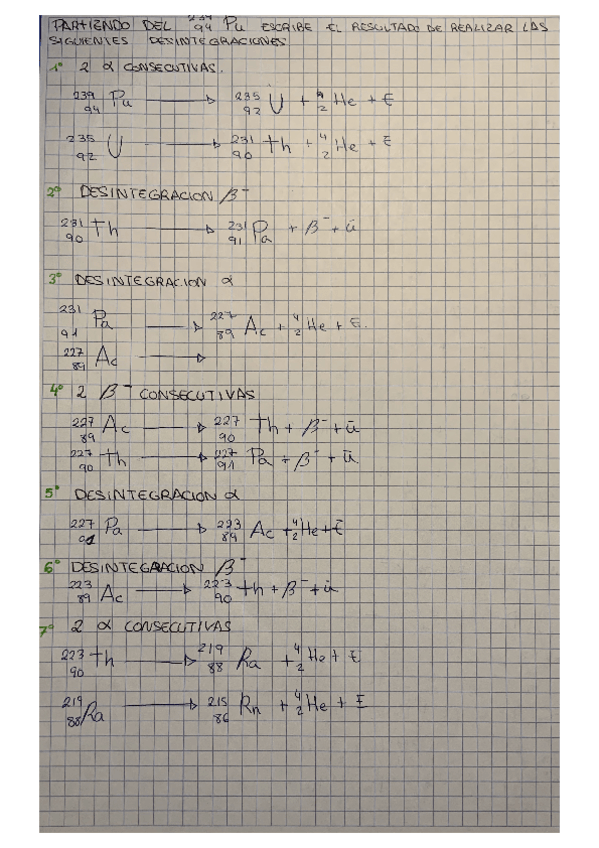 PARTIENDO DEL 239 94 Pu ESCRIBE EL RESULTADO DE REALIZAR LAS
SIGUIENTES DESINTEGRACIONES
1º 2 α CONSECUTIVAS.
239 94 Pu → 235 92 U + 4 2 He + E
235 92 U → 231 90 th + 4 2 He + E
2º DESINTEGRACION β⁻
231 90 Th → 231 91 Pa + β⁻ + ū
3º DESINTEGRACION α
231 91 Pa → 227 89 Ac + 4 2 He + E.
227 89 Ac →
4º 2 β⁻ CONSECUTIVAS
227 89 Ac → 227 90 Th + β⁻ + ū
227 90 Th → 227 91 Pa + β⁻ + ū
5º DESINTEGRACION α
227 91 Pa → 223 89 Ac + 4 2 He + E
6º DESINTEGRACION β⁻
223 89 Ac → 223 90 th + β⁻ + ū
7º 2 α CONSECUTIVAS
223 90 th → 219 88 Ra + 4 2 He + E
219 88 Ra → 215 86 Rn + 4 2 He + E